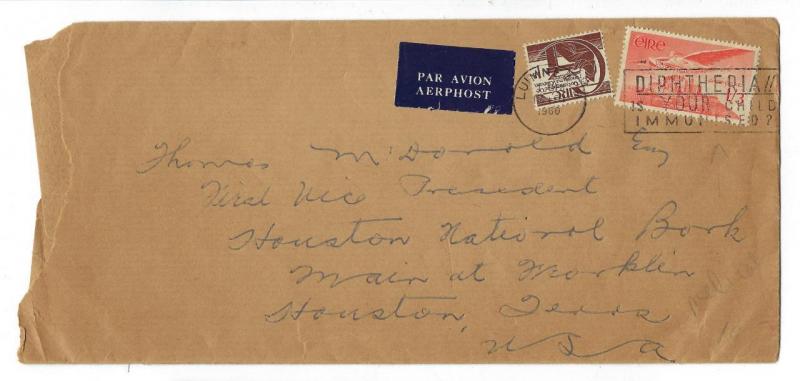 PAR AVION
AERPHOST
éire
1966
DIPHTHERIA//
IS YOUR CHILD
IMMUNISED?
Thomas McDonald Esq
First Vice President
Houston National Bank
Main at Franklin
Houston, Texas
U S A